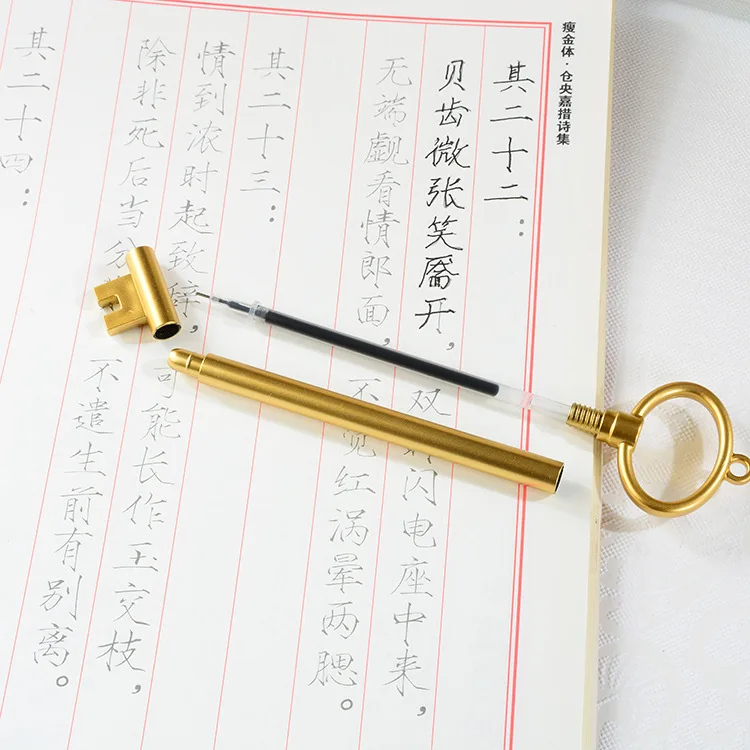 瘦金体·仓央嘉措诗集
其二十二：
贝齿微张笑靥开，双闪电座中来，
无端觑看情郎面，不觉红涡晕两腮。
其二十三：
情到浓时起致辞，可能长作玉交枝，
除非死后当分不遣生前有别离。
其二十四：